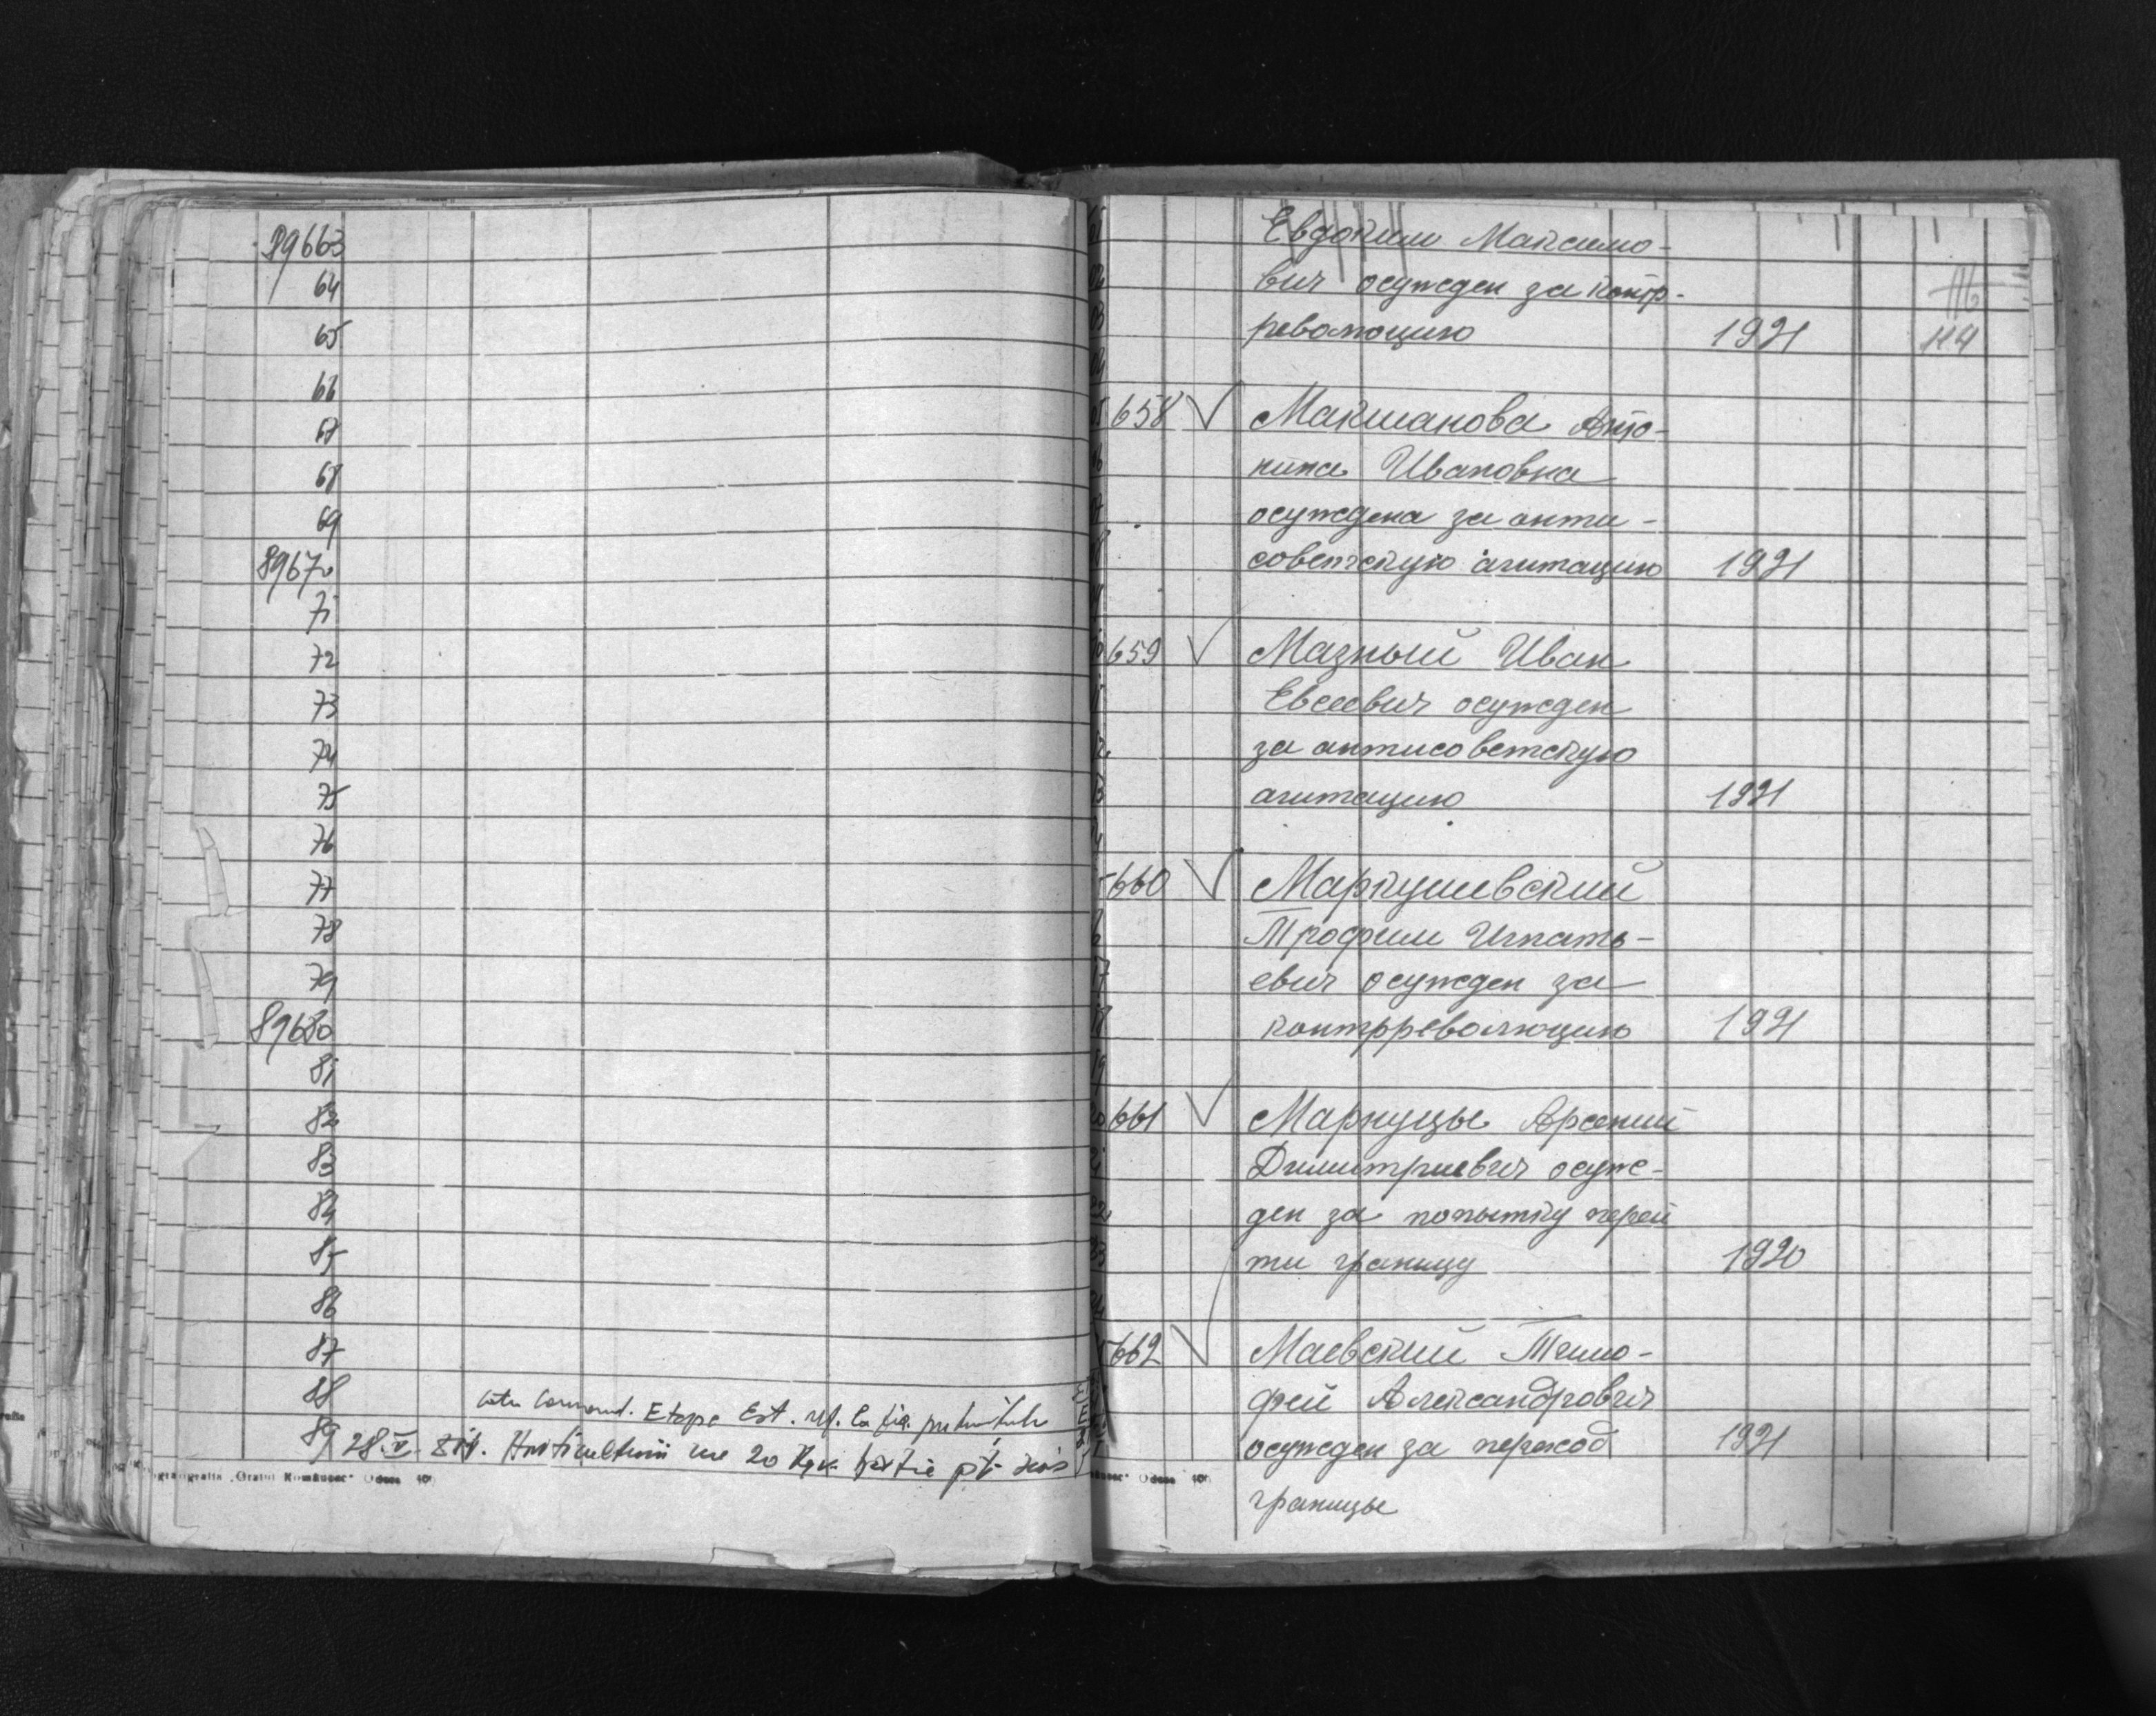 89663
64
65
66
67
68
69
89670
71
72
73
74
75
76
77
78
79
89680
81
82
83
84
85
86
87
88
Etape Est. ref. la
89 28.V. Horticulturii 20 hârtie pt.
"Graiul Românesc" Odesa
Евдоким Максимо-
вич осужден за контр-
революцию 1921
116
114
658 Макшанова Анто-
нина Ивановна
осуждена за анти-
советскую агитацию 1921
659 Мазный Иван
Евсеевич осужден
за антисоветскую
агитацию 1921
660 Маркушевский
Трофим Игнать-
евич осужден за
контрреволюцию 1921
661 Маркуцы Арсений
Димитриевич осуж-
ден за попытку перей
ти границу 1920
662 Маевский Тимо-
фей Александрович
осужден за переход 1921
границы